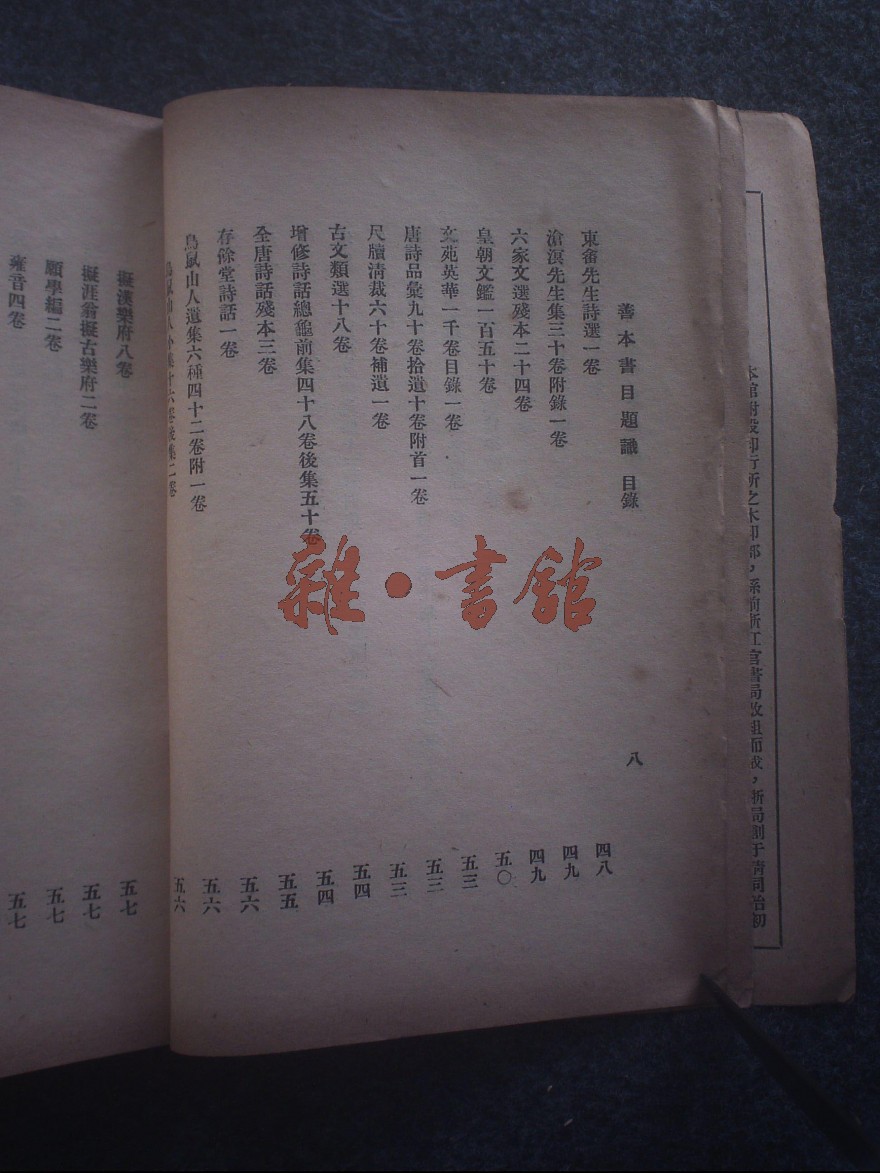 本館附設印行所之木印部，係前浙江官書局改組而成，浙局創于清同治初
善本書目題識 目錄 八
東畬先生詩選一卷 四八
滄溟先生集三十卷附錄一卷 四九
六家文選殘本二十四卷 四九
皇朝文鑑一百五十卷 五〇
文苑英華一千卷目錄一卷 五三
唐詩品彙九十卷拾遺十卷附首一卷 五三
尺牘清裁六十卷補遺一卷 五三
古文類選十八卷 五四
增修詩話總龜前集四十八卷後集五十卷 五四
全唐詩話殘本三卷 五五
存餘堂詩話一卷 五六
鳥鼠山人遺集六種四十二卷附一卷 五六
鳥鼠山人小集十六卷後集二卷 五六
擬漢樂府八卷 五七
擬涯翁擬古樂府二卷 五七
願學編二卷 五七
雍音四卷 五七
雜·書館